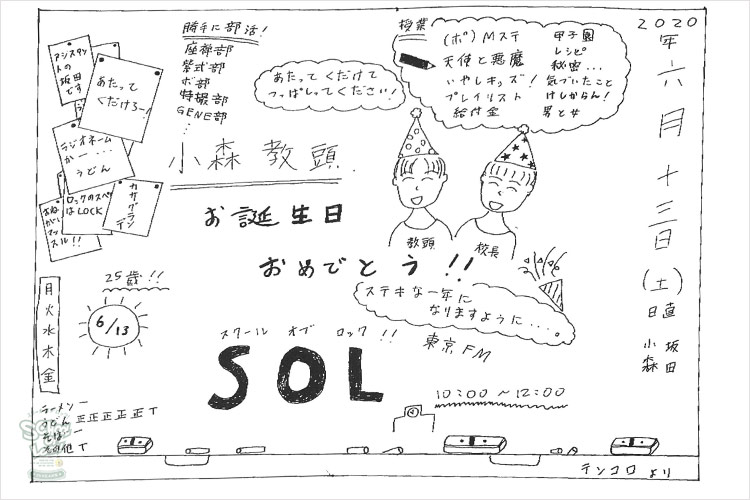 2020年六月十三日(土)
日直 坂田
小森
アシスタン
トの
坂田
です
あたって
くだけろー!
ラジオネーム
かー‥‥
うどん
ロックのスペ
はLOCK
カサグラン
デ
おね
がい
マッ
スル!!
勝手に部活!
座禅部
紫式部
ボ部
特撮部
GENE部
⋮
あたって くだけて
つっぱしってください!
授業
(ポ)Mステ
天使と悪魔
いやしキッズ!
プレイリスト
給付金
甲子園
レシピ
秘密…
気づいたこと
けしからん!
男と女
小森教頭
お誕生日
おめでとう!!
教頭
校長
ステキな一年に
なりますように‥‥。
25歳!!
6/13
月
火
水
木
金
スクール オブ ロック!!
SOL
東京FM
10:00~12:00
ラーメン 一
うどん 正正正正正T
そば 一
その他 T
テンコロ より